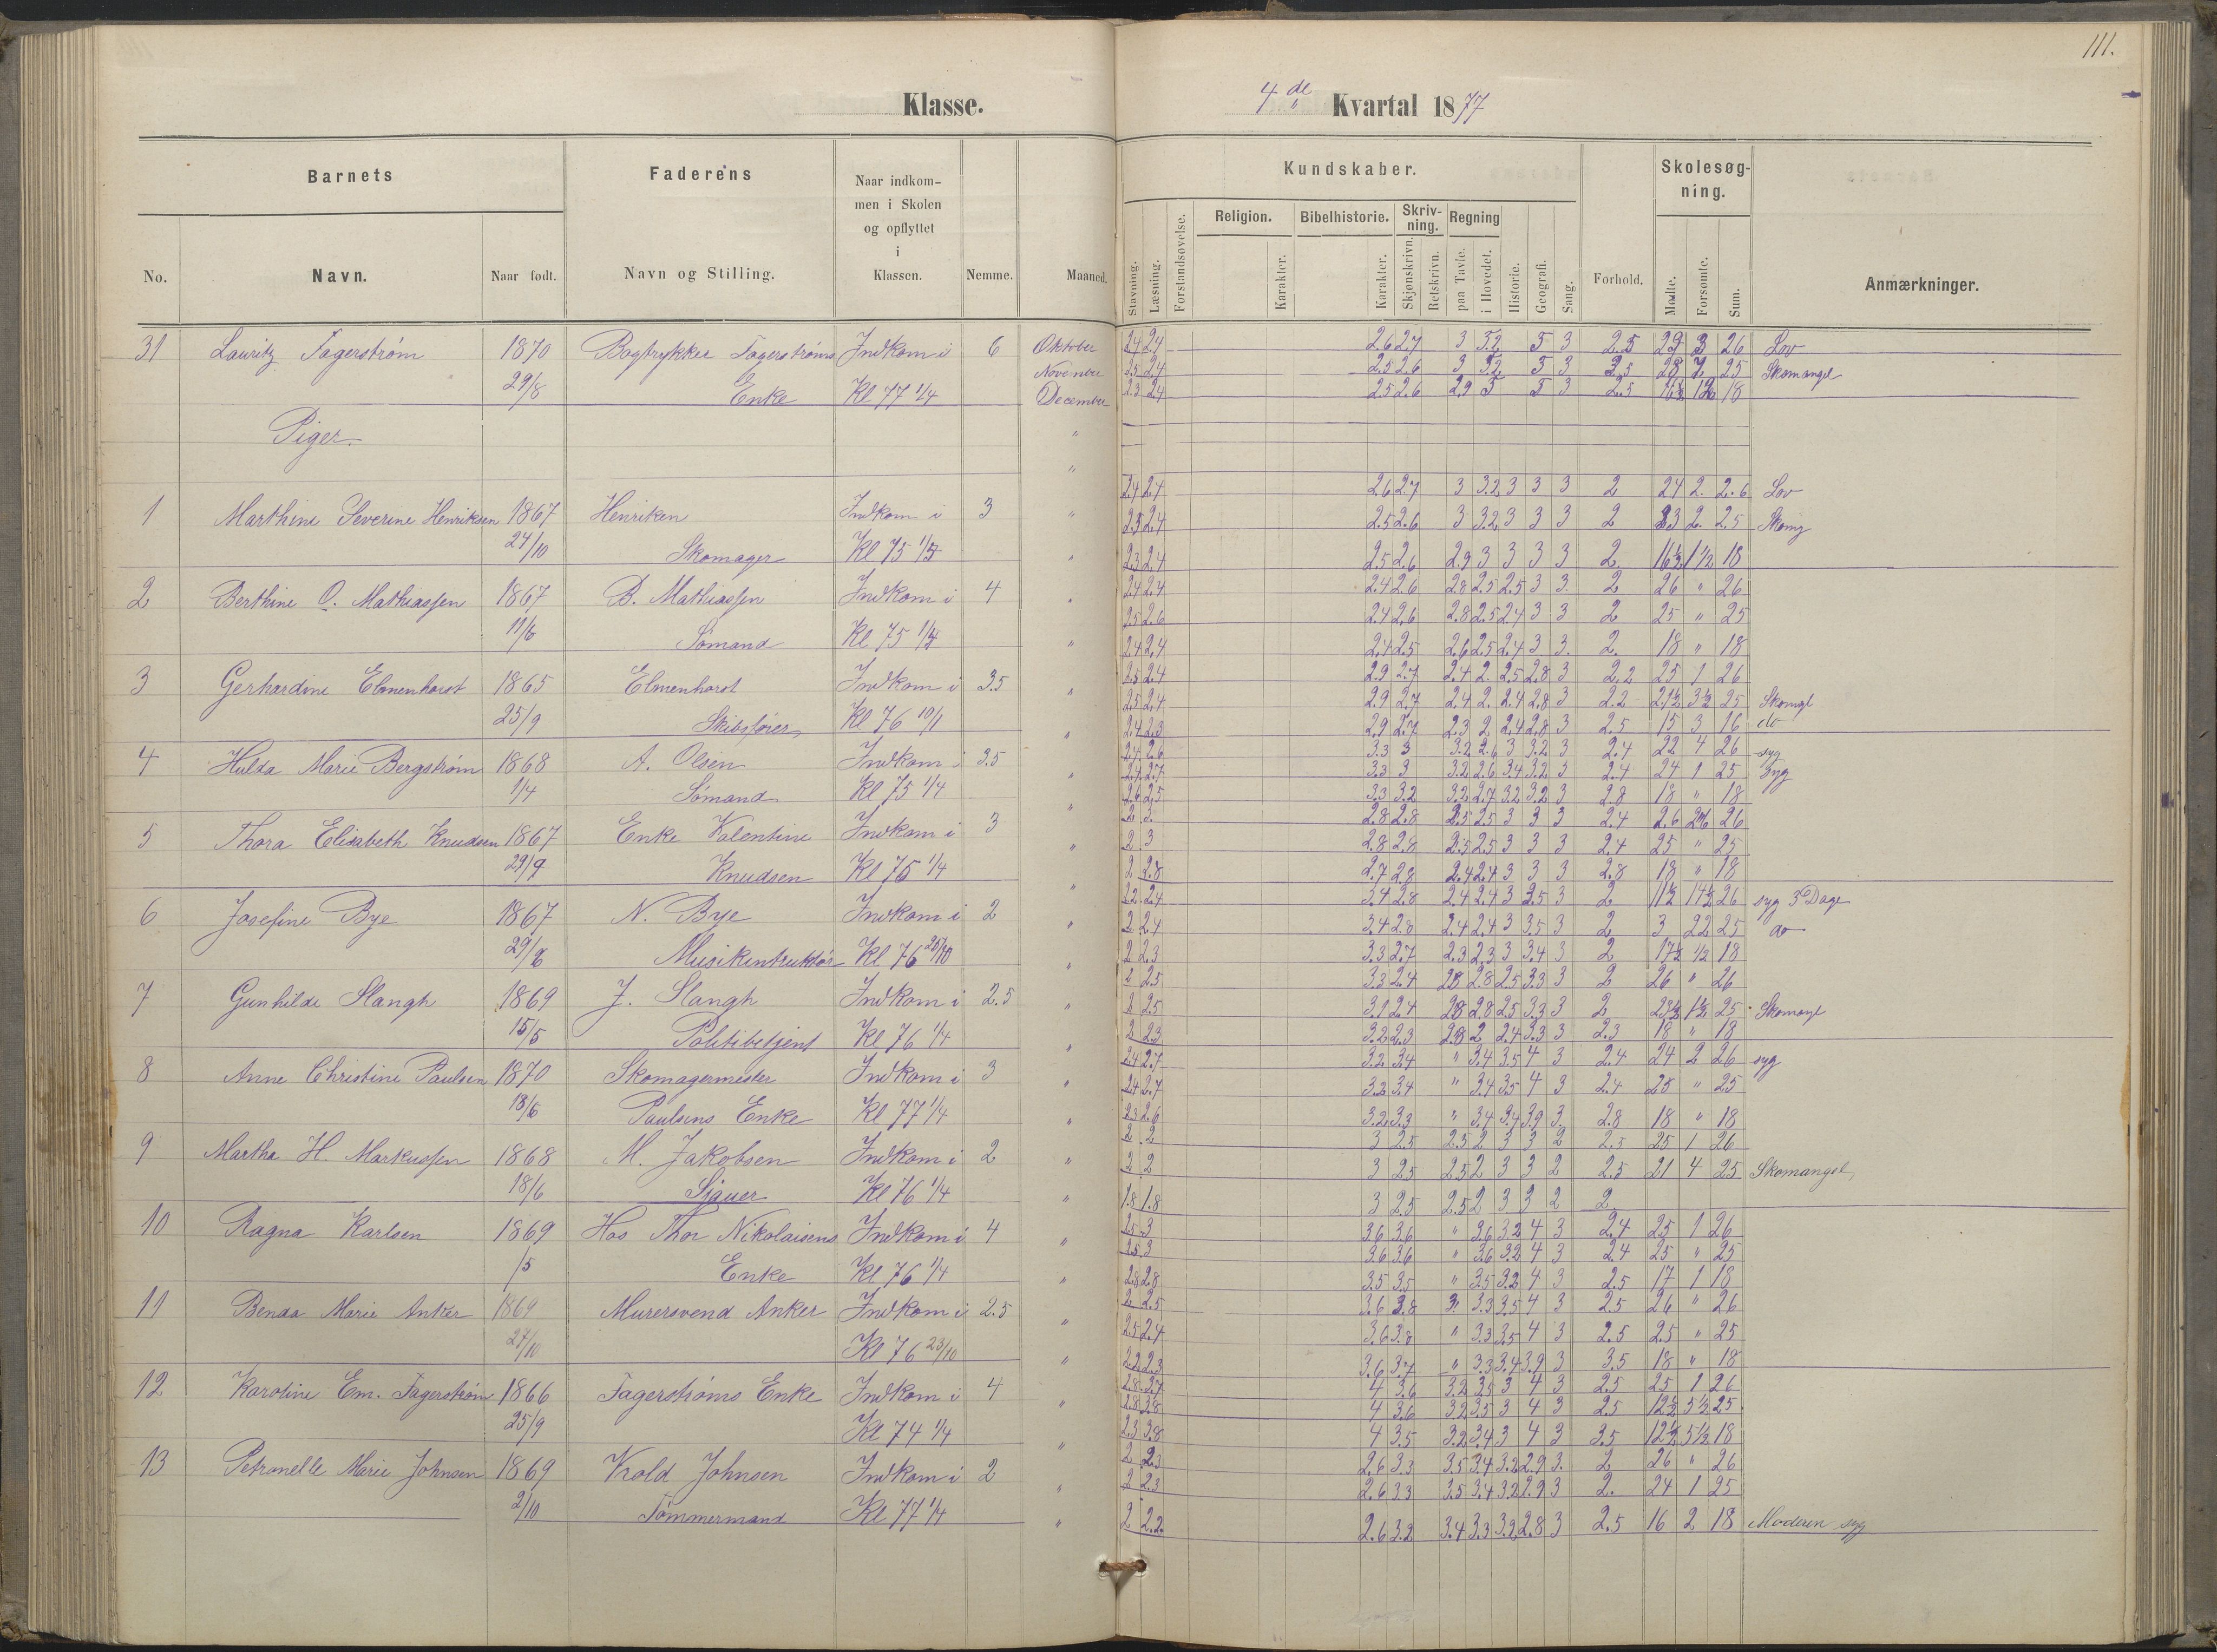 111.
Klasse. 4de Kvartal 1877
Barnets Faderens Naar indkommen i Skolen og opflyttet i Klassen. Nemme. Maaned. Kundskaber. Forhold. Skolesøgning. Anmærkninger.
No. Navn. Naar født. Navn og Stilling. Stavning. Læsning. Forstandsøvelse. Religion. Karakter. Bibelhistorie. Karakter. Skrivning. Skjønskrivn. Retskrivn. Regning paa Tavle. i Hovedet. Historie. Geografi. Sang. Mødte. Forsømte. Sum.
31 Lauritz Fagerstrøm 1870 Bogtrykker Fagerstrøms Indkom i 6 Oktober 2.4 2.4 2.6 2.7 3 3 2.5 29 3 26 Lov
November 2.5 2.4 2.5 2.6 3 3 25 Skomangel
29/8 Enke Kl 77 1/4 December 2.3 2.4 2.5 2.6 2.9 3 2.5 18
Piger. "
"
2.4 2.4 2.6 2.7 3 3.2 3 3 3 2 24 2. 2.6 Lov
1 Marthine Severine Henriksen 1867 Henriken Indkom i 3 " 2.5 2.4 2.5 2.6 3 3.2 3 3 3 2 23 2. 2.5 Skomg
24/10 Skomager Kl 75 " 2.3 2.4 2.5 2.6 2.9 3 3 3 3 2 16½ 1½ 18
2.4 2.4 2.4 2.6 2.8 2.5 2.5 3 3. 2 26 " 26
2 Berthine O. Mathiassen 1867 B. Mathiassen Indkom i 4 " 2.5 2.6 2.4 2.6 2.8 2.5 2.4 3 3 2 25 " 25
11/6 Sømand Kl 75 " 2.4 2.4 2.4 2.5 2.6 2.5 2.4 3 3. 2. 18 " 18
2.5 2.4 2.9 2.7 2.4 2. 2.5 2.8 3 2.2 25 1 26
3 Gerhardine Elmenhorst 1865 Elmenhorst Indkom i 3.5 " 2.5 2.4 2.9 2.7 2.4 2. 2.4 2.8 3 2.2 21½ 3½ 25 Skomgl
25/9 Skibsfører Kl 76 10/1 " 2.4 2.3 2.9 2.7 2.3 2 2.4 2.8 3 2.5 15 3 16 do
2.4 2.6 3.3 3 3.2 2.6 3 3.2 3 2.4 22 4 26 syg
4 Hulda Marie Bergstrøm 1868 A. Olsen Indkom i 3.5 " 2.4 2.7 3.3 3 3.2 2.6 3.4 3.2 3 2.4 24 1 25 syg
1/4 Sømand Kl 75 1/4 " 2.6 2.5 3.3 3.2 3.2 2.7 3.2 3.2 3 2.8 18 " 18
2 3. 2.8 2.8 2.5 2.5 3 3 3 2.4 26 26
5 Thora Elisabeth Knudsen 1867 Enke Valentine Indkom i 3 " 2 3 2.8 2.8 2.5 2.5 3 3 3 2.4 25 " 25
29/9 Knudsen Kl 75 1/4 " 2 2.8 2.7 2.8 2.4 2.4 3 3 3 2.8 18 " 18
2.2 2.4 3.4 2.8 2.4 2.4 3 3.5 3 2 11½ 14½ 26 syg 3 Dage
6 Josefine Bye 1867 N. Bye Indkom i 2 " 2 2.4 3.4 2.8 2.4 2.4 3 3.5 3 2 3 22 25 do
Musikintruktør Kl 76 " 2 2.3 3.3 2.7 2.3 2.3 3 3.4 3 2 17½ ½ 18
2 2.5 3.3 2.4 2.8 2.8 2.5 3.3 3 2 26 " 26
7 Gunhilde Slangh 1869 J. Slangh Indkom i 2.5 " 2 2.5 3.2 2.4 2.8 2.8 2.5 3.3 3 2 23½ 1½ 25 Skomangl
15/5 Politibetjent Kl 76 1/4 " 2 2.3 3.2 2.3 2.8 2 2.4 3.3 3 2.3 18 " 18
2.4 2.7 3.2 3.4 " 3.4 3.5 4 3 2.4 24 2 26 syg
8 Anne Christine Paulsen 1870 Skomagermester Indkom i 3 " 2.4 2.7 3.2 3.4 " 3.4 3.5 4 3 2.4 25 " 25
18/6 Paulsens Enke Kl 77 1/4 " 2.3 2.6 3.2 3.3 " 3.4 3.4 3.9 3. 2.8 18 " 18
2 2 3 2.5 2.5 2 3 3 2 2.5 25 1 26
9 Martha H. Markussen 1868 M. Jakobsen Indkom i 2 " 2 2 3 2.5 2.5 2 3 3 2 2.5 21 4 25 Skomangel
18/6 Sjauer Kl 76 1/4 " 1.8 1.8 3 2.5 2.5 2 3 3 2 2
2.5 3 3.6 3.6 " 3.6 3.2 4 3 2.4 25 1 26
10 Ragna Karlsen 1869 Hos Thor Nikolaisens Indkom i 4 " 2.5 3 3.6 3.6 " 3.6 3.2 4 3 2.4 25 " 25
/5 Enke Kl 76 1/4 " 2.8 2.8 3.5 3.5 " 3.5 3.2 4 3 2.5 17 1 18
2 2.5 3.6 3.8 3. 3.3 3.5 4 3 2.5 26 " 26
11 Benda Marie Anker 1869 Murersvend Anker Indkom i 2.5 " 2.5 2.4 3.6 3.8 " 3.3 3.5 4 3 2.5 25 " 25
27/10 Kl 76 23/10 " 2.2 2.3 3.6 3.7 " 3.3 3.4 3.9 3 3.5 18 " 18
2.8 2.7 4 3.6 3.2 3.5 3 4 3 2.5 25 1 26
12 Karoline Em. Fagerstrøm 1866 Fagerstrøms Enke Indkom i 4 " 2.8 3.8 4 3.6 3.2 3.5 3 4 3 2.5 12½ 5½ 25
25/9 Kl 74 1/4 " 2.3 3.8 4 3.5 3.2 3.4 3 4 3 3.5 12½ 5½ 18
2 2.3 2.6 3.3 3.5 3.4 3.2 2.9 3. 2 26 " 26
13 Petronelle Marie Johnsen 1869 Krold Johnsen Indkom i 2 " 2 2.3 2.6 3.3 3.5 3.4 3.2 2.9 3 2. 24 1 25
2/10 Tømmermand Kl 77 1/4 " 2 2.2. 2.6 3.2 3.4 3.3 3.2 2.8 3 2.5 16 2 18 Moderen syg